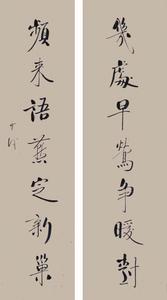 幾處早鶯争暖樹
頻来語燕定新巢